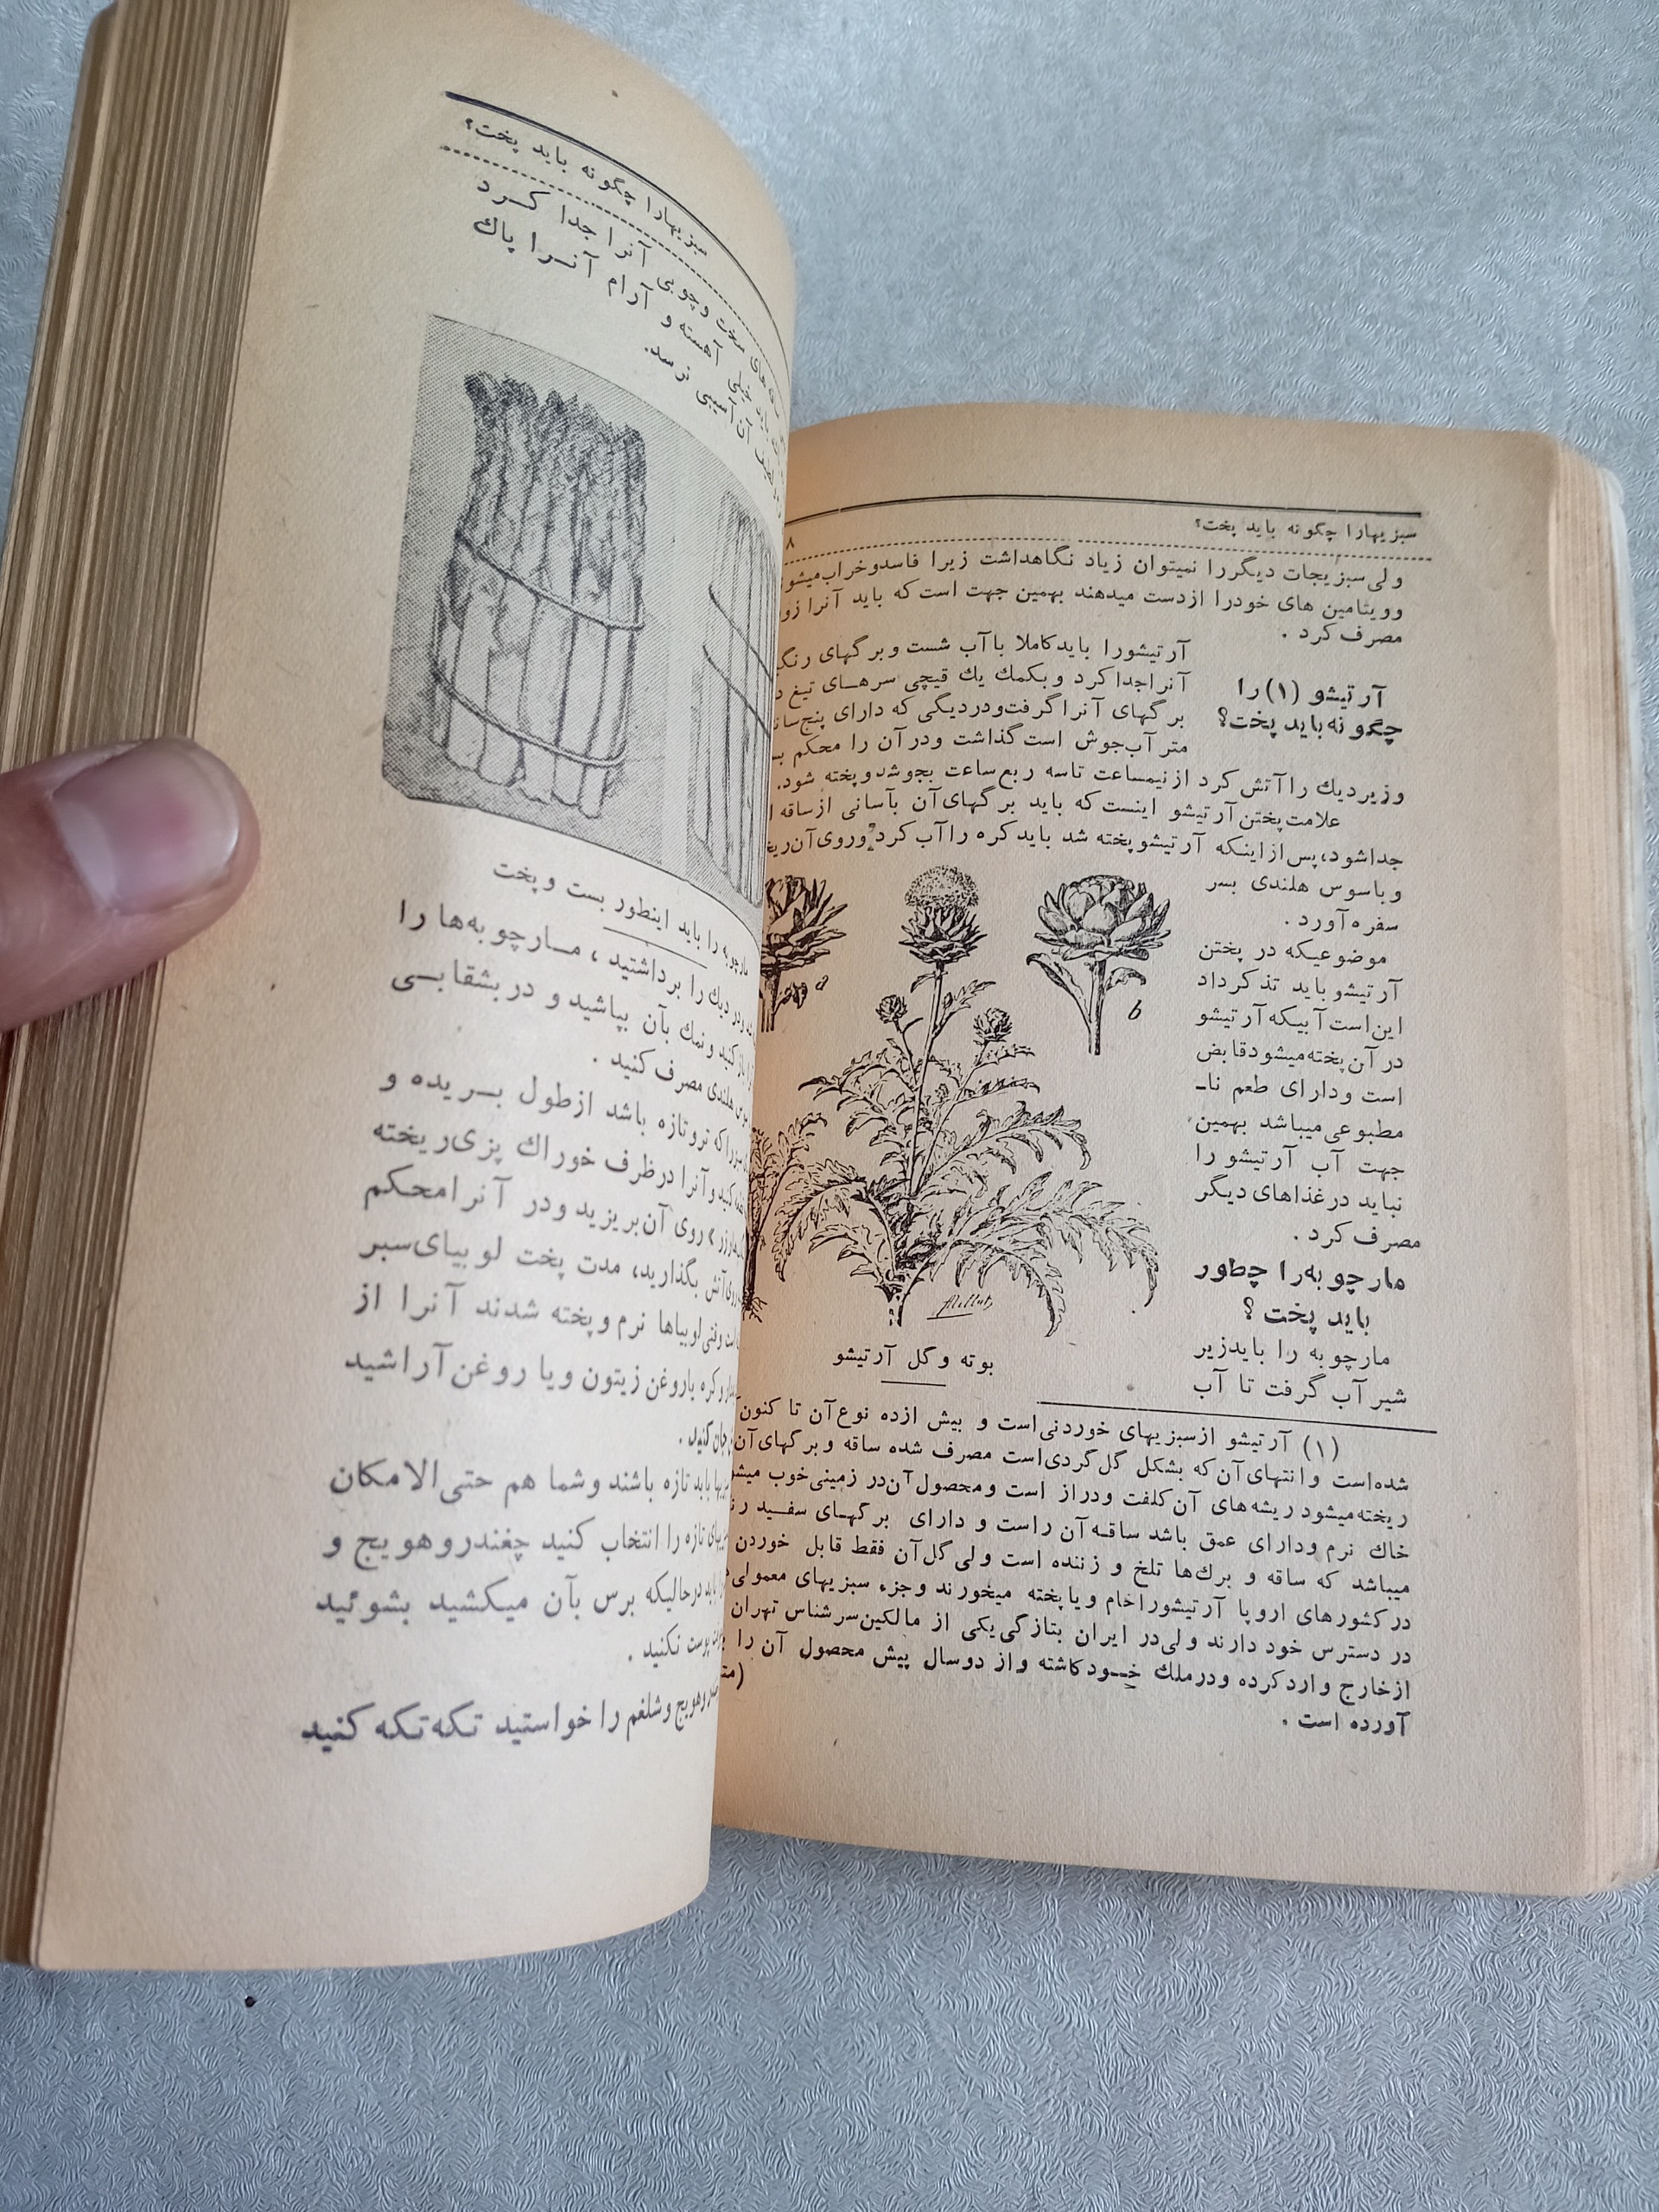 سبزیهارا چگونه باید پخت؟
۸
ولی سبزیجات دیگررا نمیتوان زیاد نگاهداشت زیرا فاسدوخراب میشو
وویتامین های خودرا ازدست میدهند بهمین جهت است که باید آنرا زو
مصرف کرد .
آرتیشو (۱) را
چگونه باید پخت؟
آرتیشورا بایدکاملا باآب شست وبرگهای رنگ
آنراجداکرد وبکمك یك قیچی سرهای تیغ د
برگهای آنراگرفت‌ودردیگی که دارای پنج‌سان
متر آب‌جوش است گذاشت ودرآن را محکم بـ
وزیردیك راآتش کرد ازنیمساعت تاسه ربع‌ساعت بجوشدوپخته شود.
علامت پختن آرتیشو اینست که باید برگهای آن بآسانی ازساقه ا
جداشود، پس‌ازاینکه آرتیشوپخته شد بایدکره راآب کرد وروی آن‌ریخ
وباسوس هلندی بسر
سفره آورد .
موضوعیکه در پختن
آرتیشوباید تذکرداد
این‌است آبیکه آرتیشو
در آن پخته‌میشودقابض
است ودارای طعم نا‌ـ
مطبوعی‌میباشد بهمین
جهت آب آرتیشو را
نباید درغذاهای دیگر
مصرف کرد .
a
b
بوته وگل آرتیشو
مارچوبه‌را چطور
باید پخت ؟
مارچوبه را بایدزیر
شیرآب گرفت تا آب
(۱) آرتیشو ازسبزیهای خوردنی‌است و بیش ازده نوع‌آن تا کنون
شده‌است وانتهای آن‌که بشکل گل‌گردی‌است مصرف شده ساقه وبرگهای آن
ریخته‌میشود ریشه‌های آن‌کلفت ودراز است ومحصول آن‌در زمینی‌خوب میشو
خاك نرم ودارای عمق باشد ساقـه آن راست و دارای برگهـای سفـید رنـ
میباشد که ساقه و برك‌ها تلخ و زننده است ولی گل‌آن فقط قابل خوردن
درکشورهای اروپا آرتیشوراخام ویاپخته میخورند وجزء سبزیهای معمولی
در دسترس خود دارند ولی‌در ایران بتازگی‌یکی از مالکین‌سرشناس تهران
ازخارج واردکرده ودرملك خـودکاشته واز دوسال پیش محصول آن را
آورده است .
(مت
سبزیهارا چگونه باید پخت؟
های سخت وچوبی آنرا جدا کـرد
باید خیلی آهسته و آرام آنـرا پاك
آن آسیبی نرسد.
مارچوبه را باید اینطور بست وپخت
دردیك را برداشتید ، مـارچوبه‌ها را
بازکنید ونمك بآن بپاشید و دربشقابـی
هلندی مصرف کنید .
که تروتازه باشد ازطول بـریده و
کنید وآنرا درظرف خوراك پزی‌ریخته
روی آن‌بریزید ودر آنرامحکم
روی‌آتش بگذارید، مدت پخت لوبیای‌سبز
لوبیاها نرم وپخته شدند آنرا از
وکره باروغن زیتون ویا روغن آراشید
کنید .
باید تازه باشند وشما هم حتی‌الامکان
تازه را انتخاب کنید چغندروهویج و
درحالیکه برس بآن میکشید بشوئید
پوست نکنید .
وهویج وشلغم را خواستید تکه‌تکه کنید